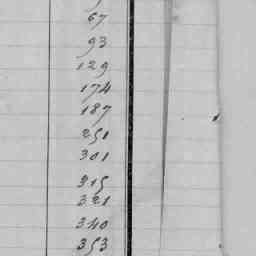 67
93
129
174
187
251
301
315
321
340
353